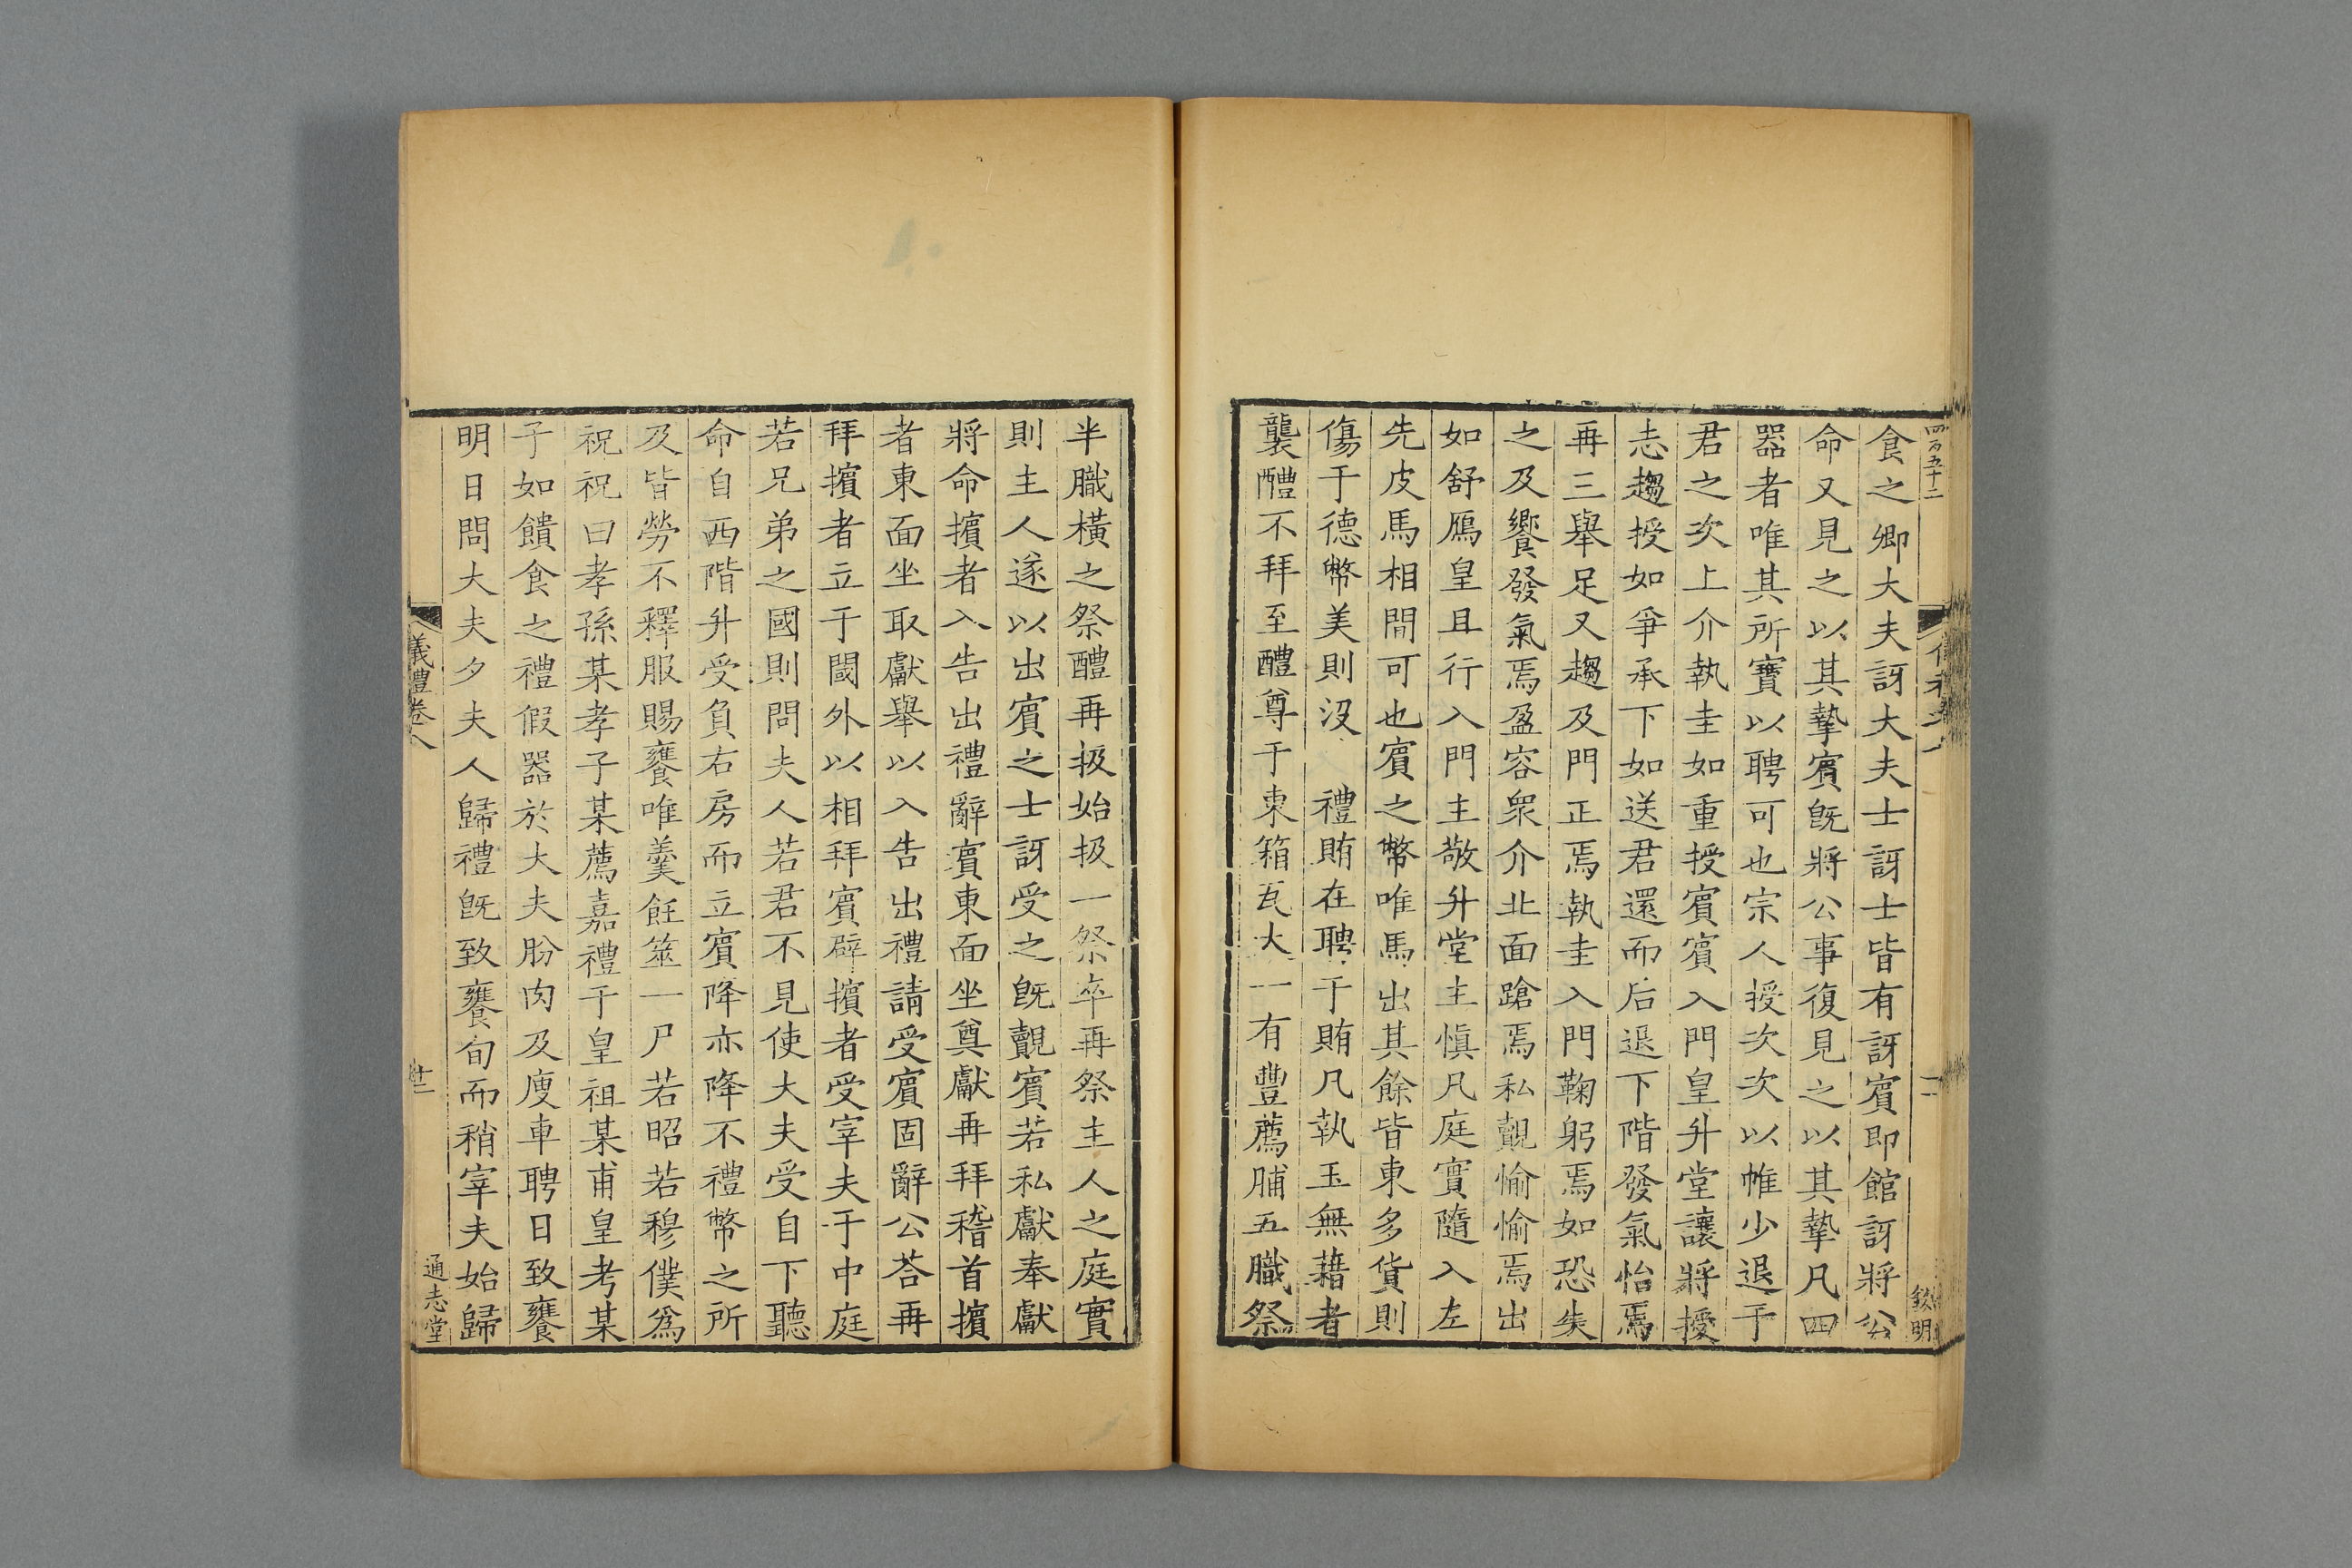 四百五十二
食之卿大夫訝大夫士訝士皆有訝賓即館訝將公
命又見之以其摯賓旣將公事復見之以其摯凡四
器者唯其所寶以聘可也宗人授次次以帷少退于
君之次上介執圭如重授賓賓入門皇升堂讓將授
志趨授如爭承下如送君還而后退下階發氣怡焉
再三舉足又趨及門正焉執圭入門鞠躬焉如恐失
之及饗發氣焉盈容衆介北面蹌焉私覿愉愉焉出
如舒鴈皇且行入門主敬升堂主慎凡庭實隨入左
先皮馬相間可也賓之幣唯馬出其餘皆東多貨則
傷于德幣美則沒禮賄在聘于賄凡執玉無藉者
襲醴不拜至醴尊于東箱瓦大一有豐薦脯五膱祭
半膱橫之祭醴再扱始扱一祭卒再祭主人之庭實
則主人遂以出賓之士訝受之旣覿賓若私獻奉獻
將命擯者入告出禮辭賓東面坐奠獻再拜稽首擯
者東面坐取獻舉以入告出禮請受賓固辭公荅再
拜擯者立于閾外以相拜賓辟擯者受宰夫于中庭
若兄弟之國則問夫人若君不見使大夫受自下聽
命自西階升受負右房而立賓降亦降不禮幣之所
及皆勞不釋服賜饔唯羹飪筮一尸若昭若穆僕爲
祝祝曰孝孫某孝子某薦嘉禮于皇祖某甫皇考某
子如饋食之禮假器於大夫肦肉及廋車聘日致饔
明日問大夫夕夫人歸禮旣致饔旬而稍宰夫始歸
儀禮卷八
廿二
通志堂